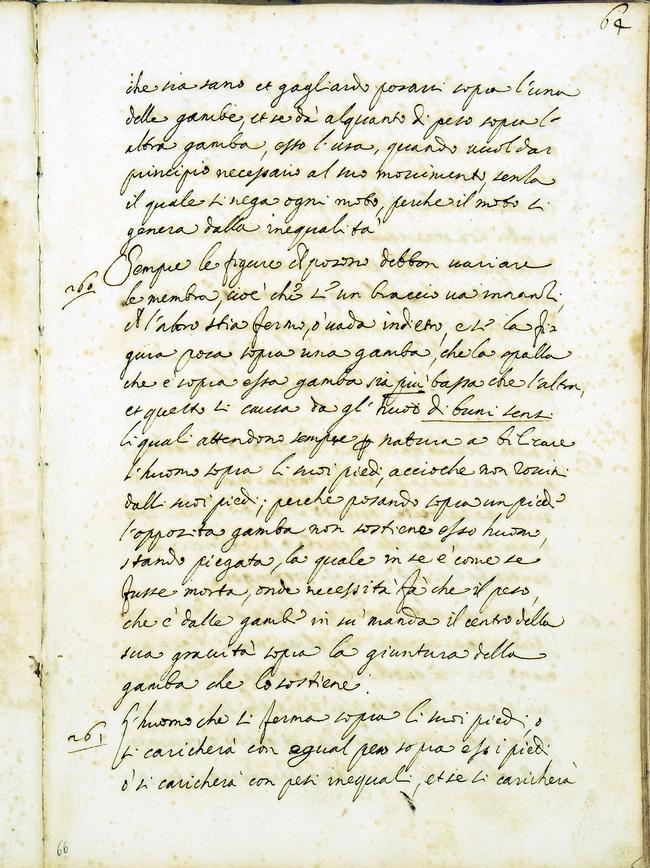 64
che sia sano et gagliardo posarsi sopra l'una
delle gambe, et se dà alquanto di peso sopra l'
altra gamba, esso l'usa, quando vuol dar
principio necessario al suo movimento, senza
il quale si nega ogni moto, perche il moto si
genera dalla inequalità
260 Sempre le figure che posono debbon variare
le membra, cioè che se un braccio va innanti,
che l'altro stia fermo, ò vada indietro, e se la fi-
gura posa sopra una gamba, che la spalla
che è sopra essa gamba sia più bassa che l'altra,
et questo si causa da gl' huoi di buni sensi
li quali attendono sempre p natura a bilicare
l'huomo sopra li suoi piedi, accioche non rovini
dalli suoi piedi; perche posando sopra un piede
l'opposita gamba non sostiene esso huomo,
stando piegata, la quale in se è come se
fusse morta, onde necessità fà che il peso,
che è dalle gambe in su' manda il centro della
sua gravità sopra la giuntura della
gamba che lo sostiene.
261 L'huomo che si ferma sopra li suoi piedi, o
si caricherà con egual peso sopra essi piedi
ò si caricherà con pesi inequali, et se si caricherà
66